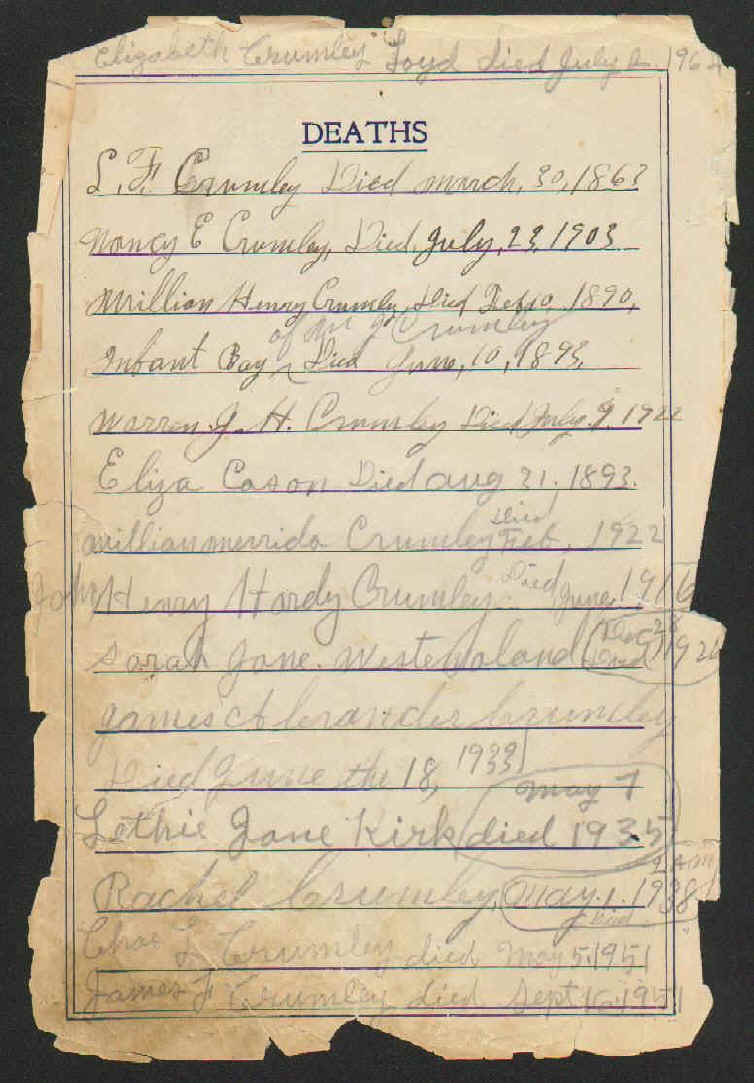 Elizabeth Crumley Loyd died July 2 1964
DEATHS
L. F. Crumley Died march, 30, 1863
Nancy E Crumley, Died, July, 23, 1903
Million Henry Crumley, Died Feb 10, 1890,
of W J Crumley
Infant Boy Died June, 10, 1893,
Warren J. H. Crumley Died July. 9. 1922
Eliza Cason Died aug 31, 1893.
Died
million merrida Crumley Feb, 1922
John Henry Hardy Crumley Died June, 1916
Sarah Jane. Westmoland Dec 28 Died 1926
James Alexander Crumley
Died June the 18, 1933
may 7
Lethie Jane Kirk died 1935
2 AM
Rachel Crumley, May. 1. 1938
died
Chas L Crumley died May 5. 1951
James F Crumley died Sept 16. 1951